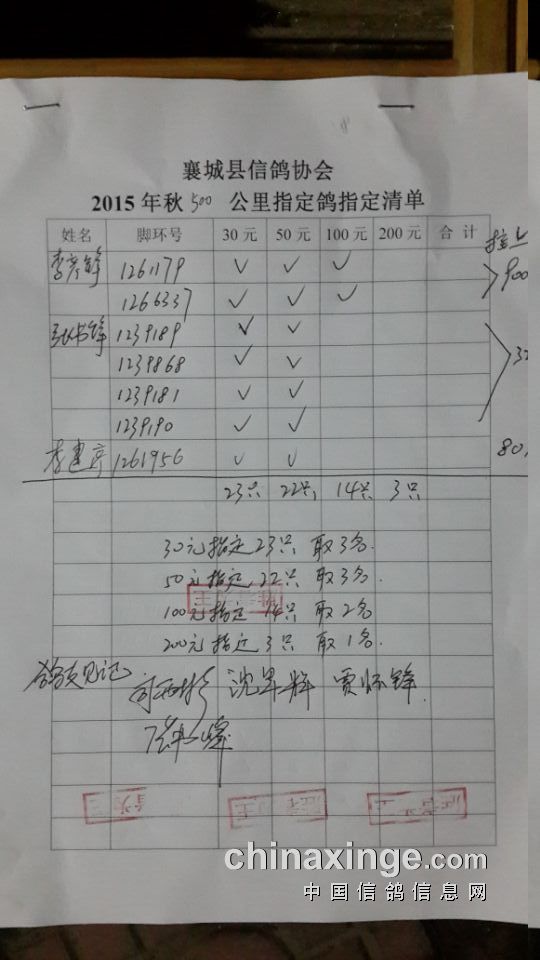 襄城县信鸽协会
2015 年秋 500 公里指定鸽指定清单
姓名 脚环号 30 元 50 元 100 元 200 元 合 计
1261179 ✓ ✓ ✓ 900
1266337 ✓ ✓ ✓
1239189 ✓ ✓
1239868 ✓ ✓ 32
1239181 ✓ ✓
1239190 ✓ ✓
李建序 1261956 ✓ ✓ 80
23只 22只 14只 3只
30元指定23只 取3名.
50元指定22只 取3名.
100元指定14只 取2名.
200元指定3只 取1名.
沈昇辉 贾怀锋
chinaxinge.com
中国信鸽信息网